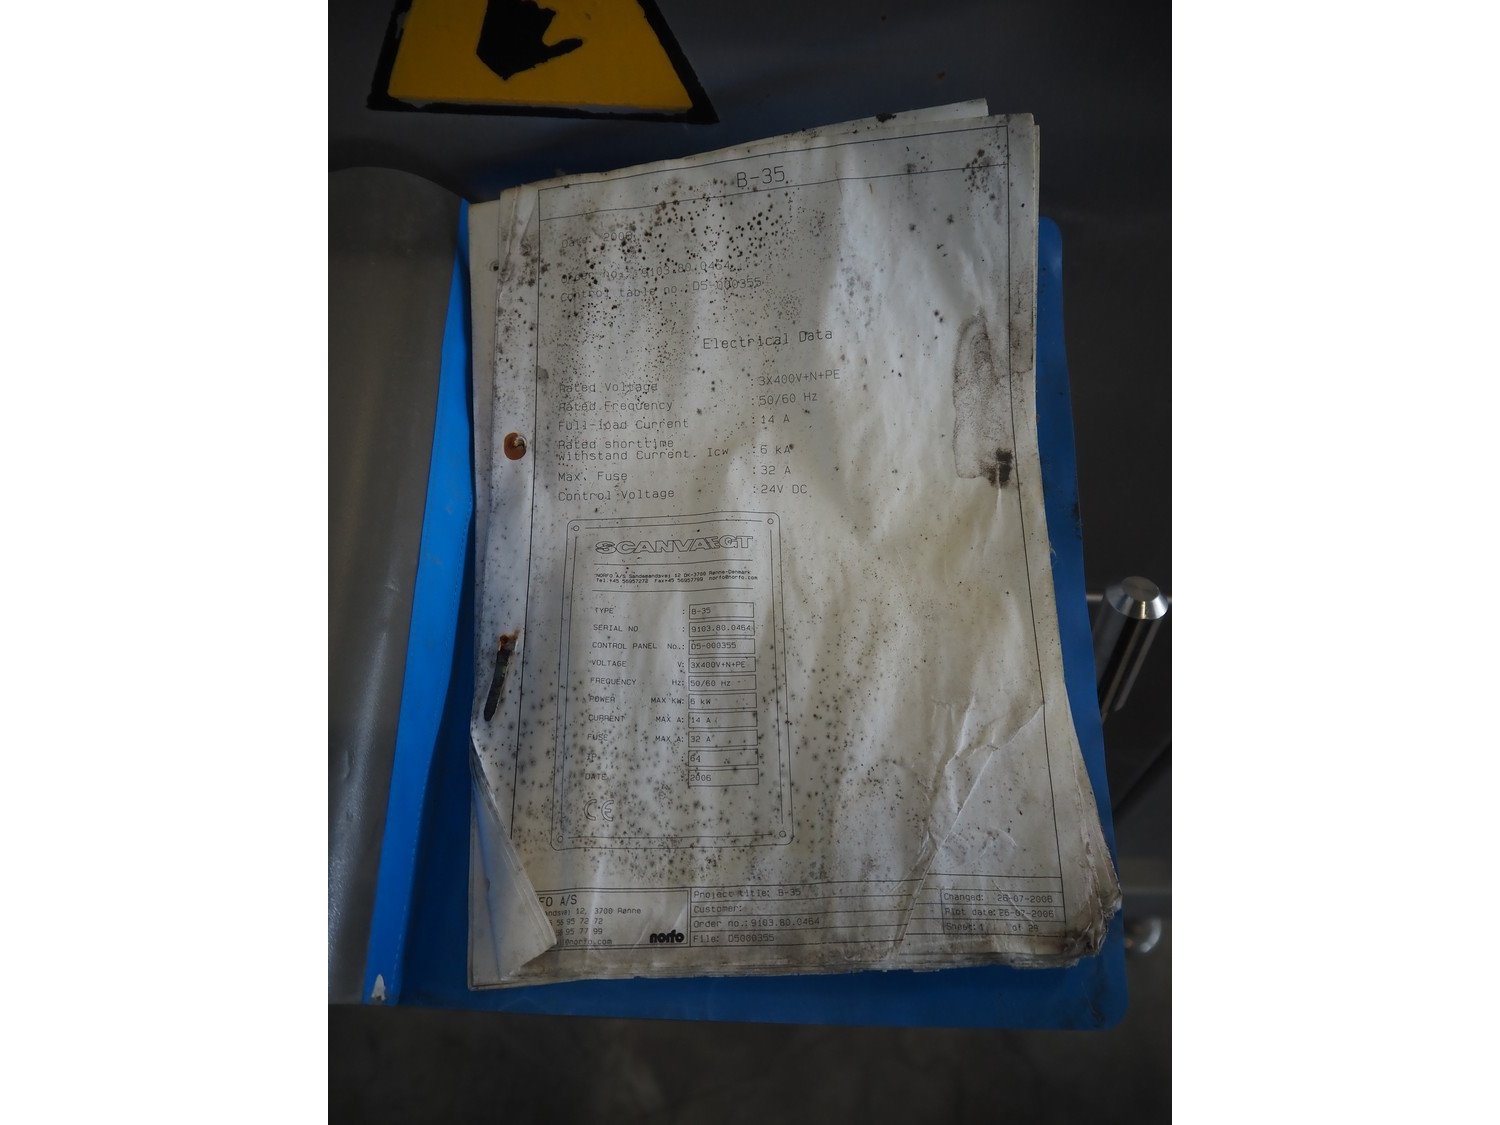 B-35
Date: 2006
Order no.: 9103.80.0464
Control table no.: D5-000355
Electrical Data
Rated Voltage :3X400V+N+PE
Rated Frequency :50/60 Hz
Full-load Current :14 A
Rated shorttime
withstand Current. Icw :6 kA
Max. Fuse :32 A
Control Voltage :24V DC
SCANVAEGT
NORFO A/S Sandemandsvej 12 DK-3700 Rønne-Denmark
Tel.+45 56957272 Fax+45 56957799 norfo@norfo.com
TYPE : B-35
SERIAL NO : 9103.80.0464
CONTROL PANEL No.: D5-000355
VOLTAGE V: 3X400V+N+PE
FREQUENCY Hz: 50/60 Hz
POWER MAX KW: 6 kW
CURRENT MAX A: 14 A
FUSE MAX A: 32 A
IP : 64
DATE : 2006
CE
FO A/S
andsvej 12, 3700 Rønne
56 95 72 72
95 77 99
@norfo.com
norfo
Project title: B-35
Customer:
Order no.: 9103.80.0464
File: D5000355
Changed: 26-07-2006
Plot date: 26-07-2006
Sheet: 1 of 28